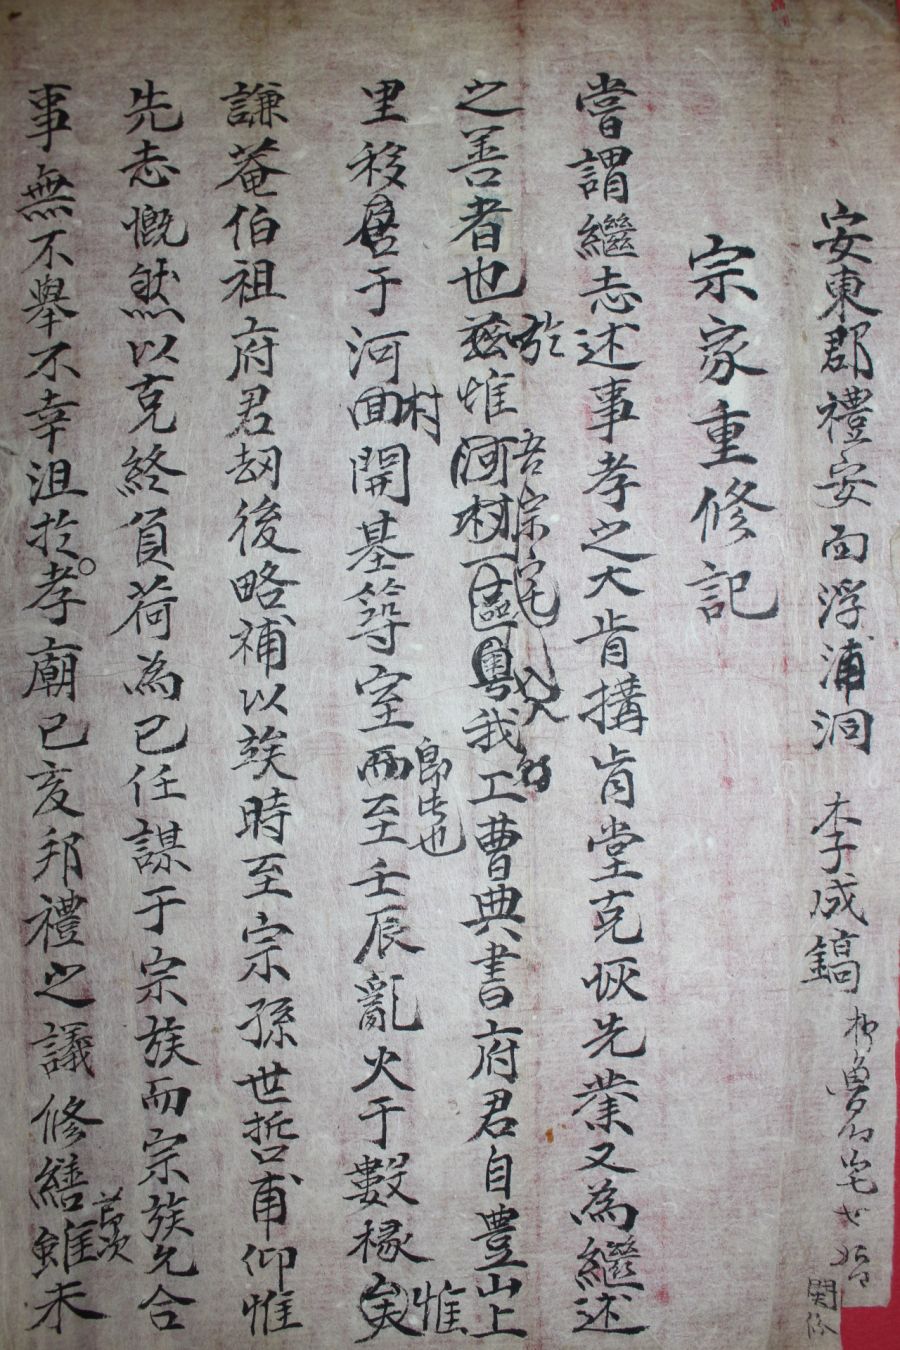 安東郡禮安面浮浦洞 李成鎬
宗家重修記
嘗謂繼志述事孝之大肯搆肯堂克恢先業又為繼述
之善者也玆惟河村一區粵我工曹典書府君自豊山上
於
吾宗宅
里移居于河回開基築室而至壬辰亂火于數椽矣
村
惟
謙菴伯祖府君刼後略補以竢時至宗孫世哲甫仰惟
先志慨然以克終負荷為已任謀于宗族而宗族允合
事無不舉不幸沮於孝廟已亥邦禮之議修繕雖未